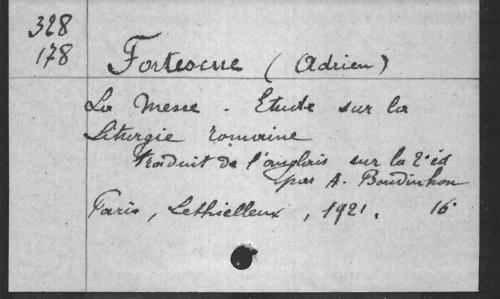 328
178
Fortescue (Adrien)
La Messe - Etude sur la
Liturgie romaine
traduit de l'anglais sur la 2e éd
par A. Boudinhon
Paris, Lethielleux, 1921. 16°